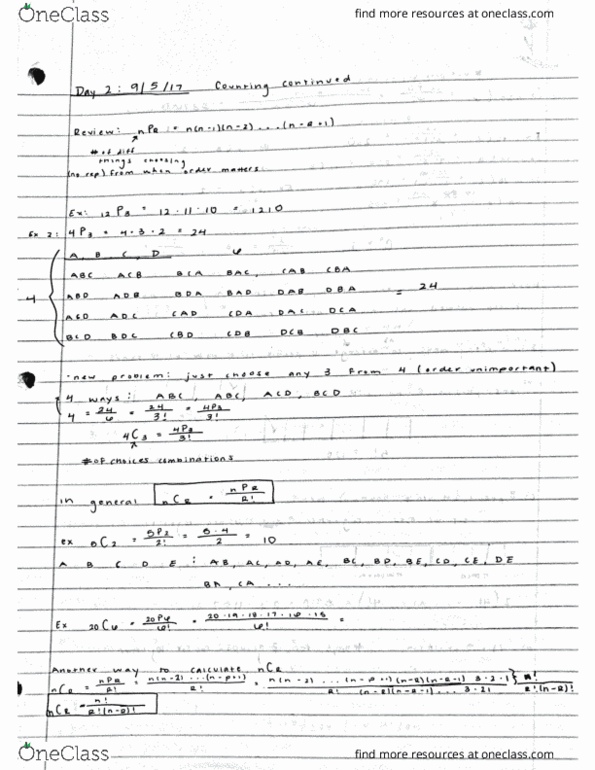 OneClass
find more resources at oneclass.com
Day 2: 9/5/17 Counting continued
Review: nPR = n(n-1)(n-2)...(n-R+1)
# of diff
things choosing
(no rep) from when order matters
Ex: 12P3 = 12·11·10 = 1210
Ex 2: 4P3 = 4·3·2 = 24
A, B, C, D 6
ABC ACB BCA BAC, CAB CBA
ABD ADB BDA BAD DAB DBA = 24
4
ACD ADC CAD CDA DAC DCA
BCD BDC CBD CDB DCB DBC
-new problem: just choose any 3 from 4 (order unimportant)
4 ways: ABC, ABC, ACD, BCD
4 = 24/6 = 24/3! = 4P3/3!
4C3 = 4P3/3!
# of choices combinations
in general nCR = nPR/R!
ex 5C2 = 5P2/2! = 5·4/2 = 10
A B C D E : AB, AC, AD, AE, BC, BD, BE, CD, CE, DE
BA, CA ...
Ex 20C6 = 20P6/6! = 20·19·18·17·16·15/6! =
Another way to calculate nCR
nCR = nPR/R! =
nCR = n!/R!(n-R)!
OneClass
find more resources at oneclass.com